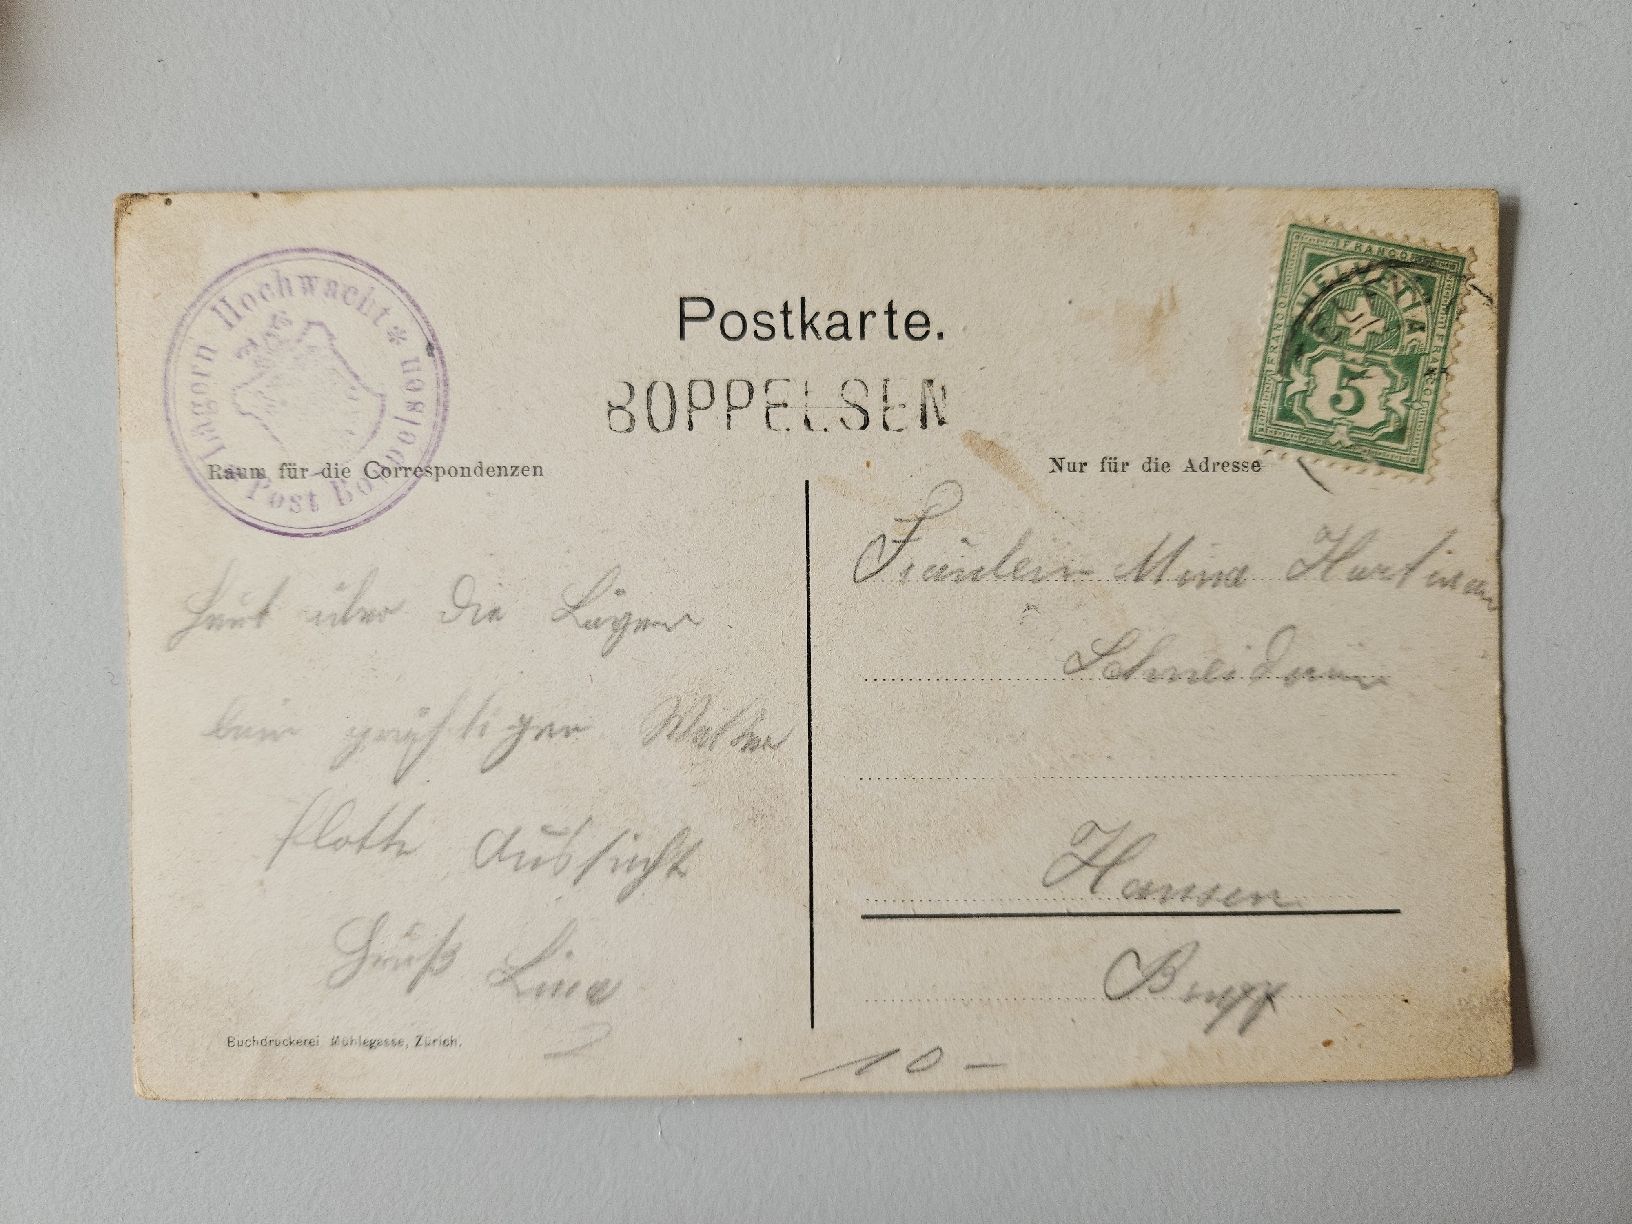 Lägern Hochwacht * Post Boppelsen
Postkarte.
BOPPELSEN
FRANCO HELVETIA FRANCO
5
Raum für die Correspondenzen
Nur für die Adresse
Heut über die Lägern
beim prächtigen Wetter
flotte Aussicht
Gruß Lina
Fräulein Mina Hartman
Schneiderin
Hausen
Brugg
Buchdruckerei Mühlegasse, Zürich.
10 –